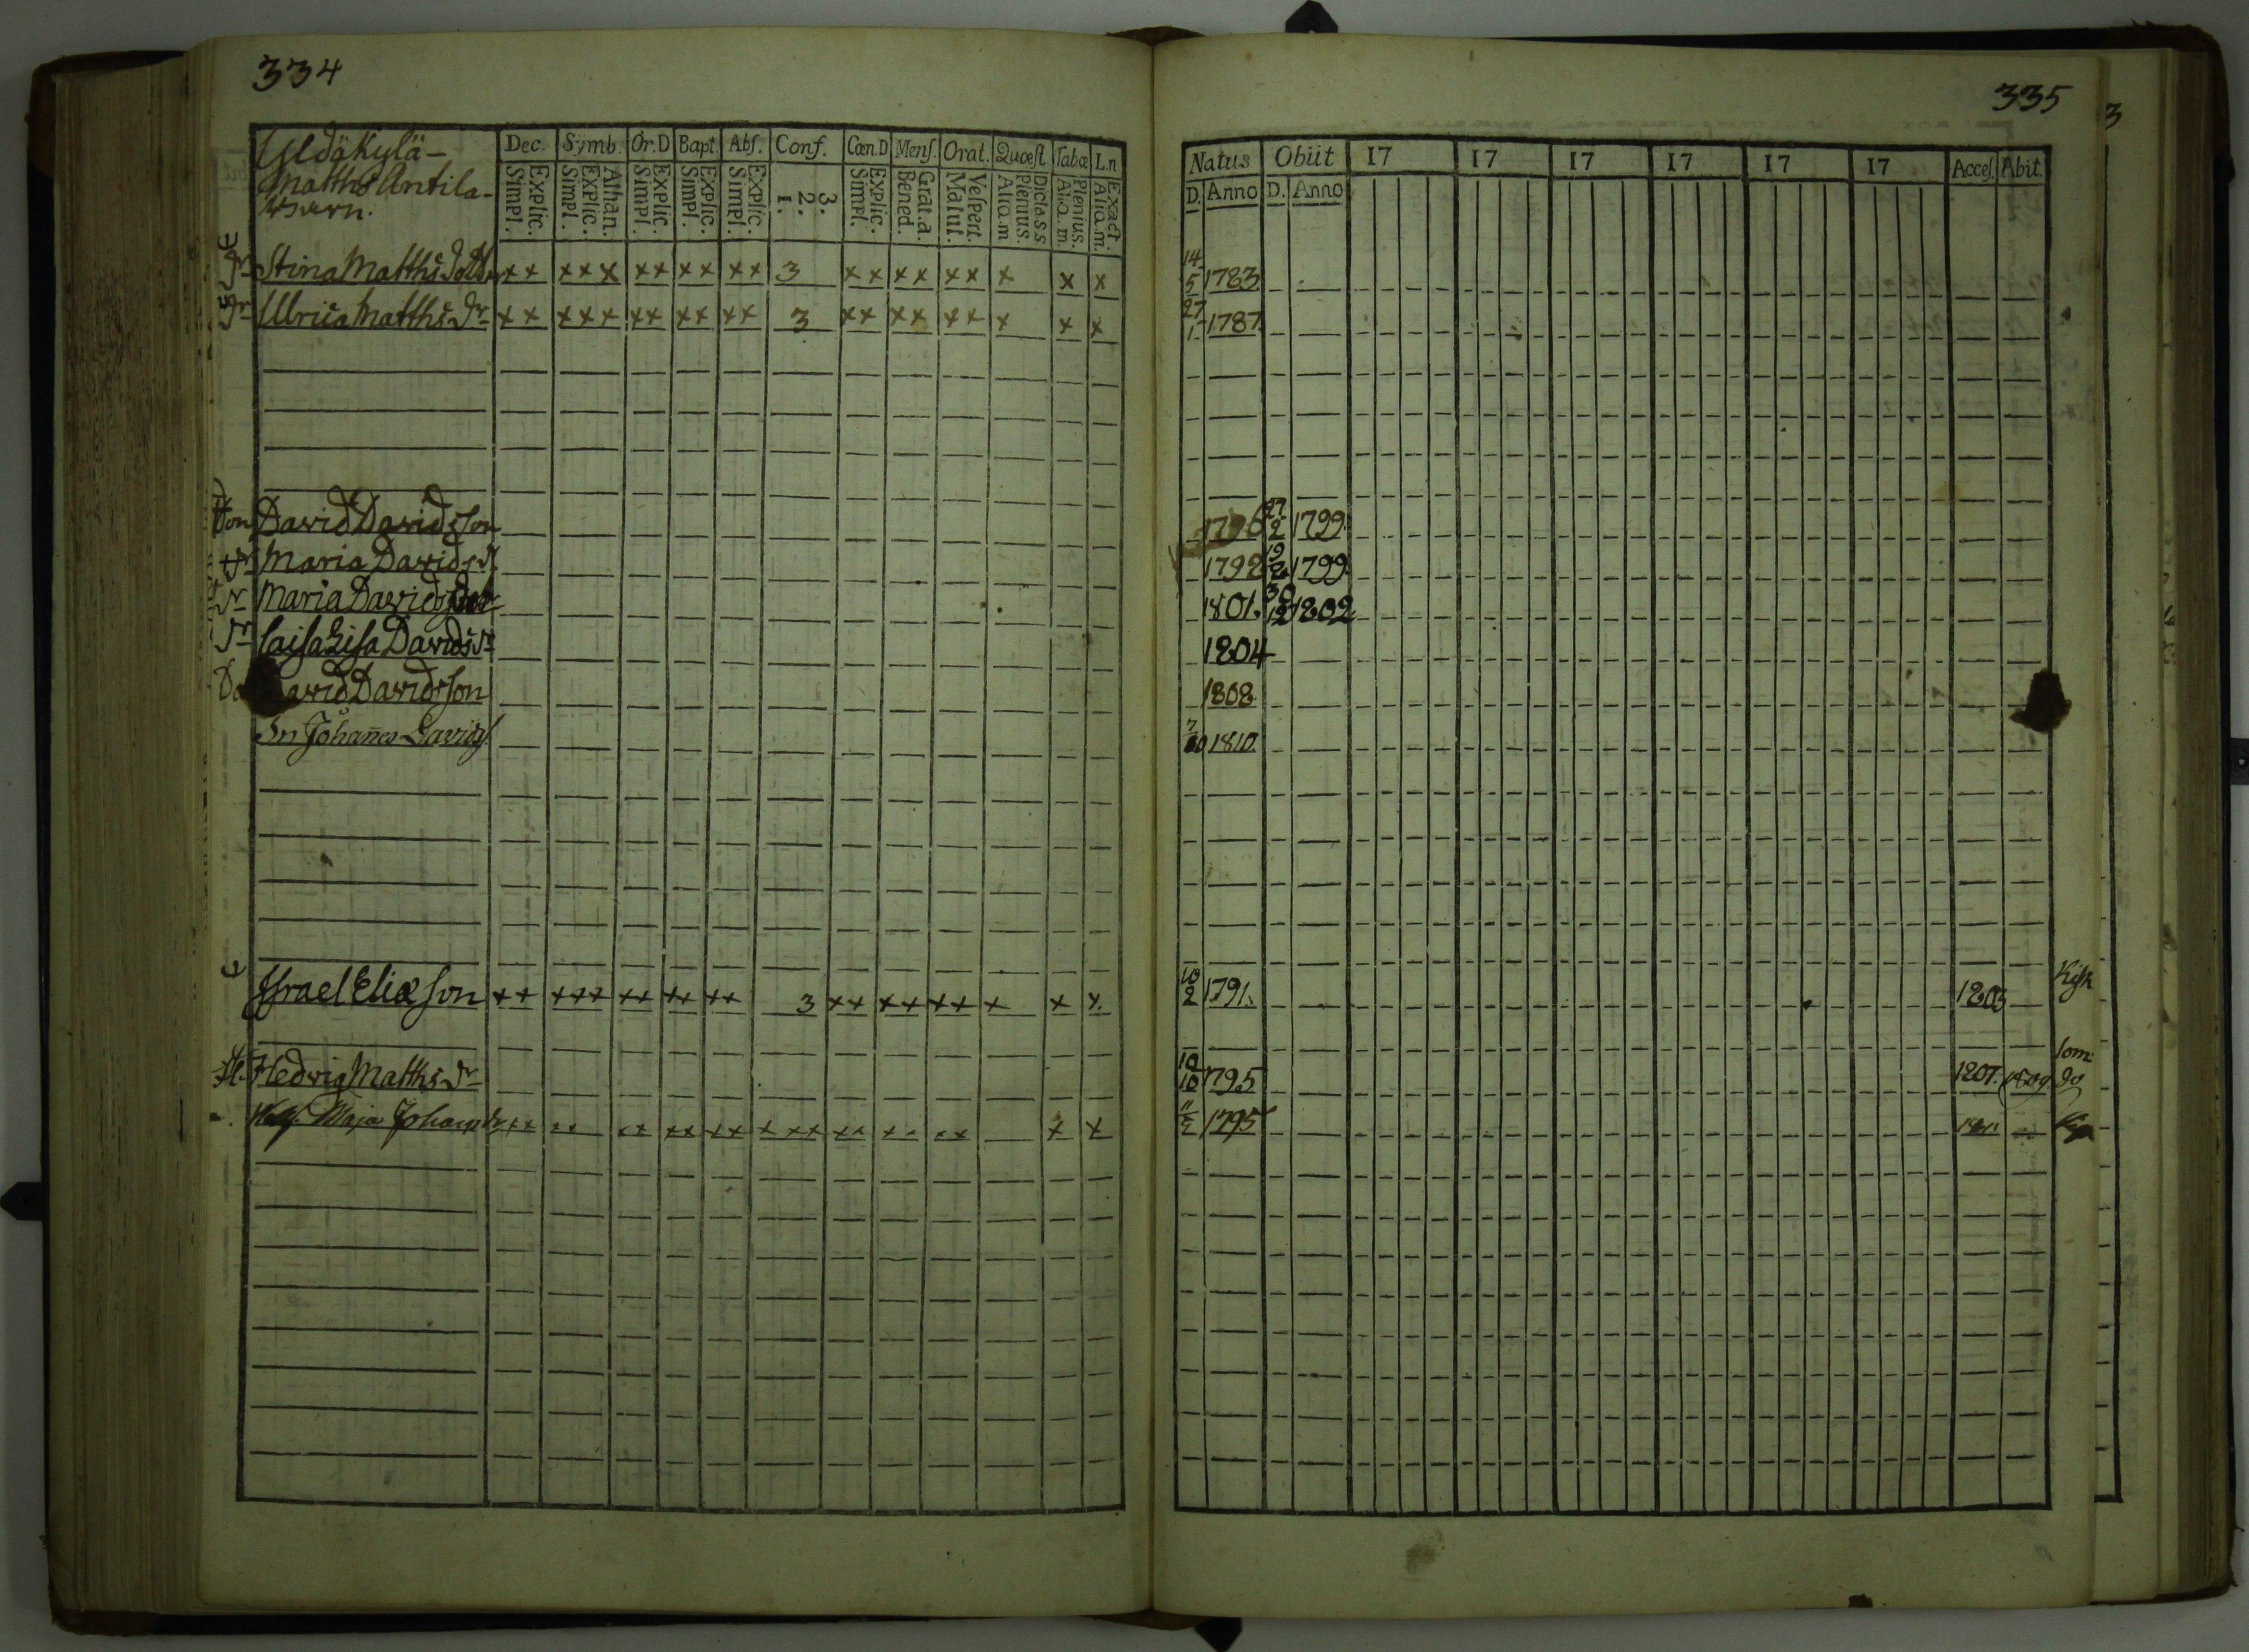 334
335
3
Yldäkylä-
Matths Antila-
Barn.
Dec. Symb. Or.D Bapt. Abs. Conf. Cœn.D Mens. Orat. Quæst. Tabæ L.n
Explic. Simpl. Athan. Explic. Simpl. Explic. Simpl. Explic. Simpl. Explic. Simpl. 3. 2. 1. Explic. Simpl. Grat.a. Bened. Vespert. Matut. Dicta.s.s Plenius. Aliq.m Plenius. Aliq.m. Exact. Aliq.m.
Natus Obiit 17 17 17 17 17 17 Acces. Abit.
D. Anno D. Anno
Dr Stina Matths x x x x x x x x x x x 3 x x x x x x x x x 14/5 1783
Dr Ulrica Matths Dr x x x x x x x x x x x 3 x x x x x x x x x 27/1 1787
Son David Davidsson 1796 27/2 1799
Dr Maria Davids Dr 1798 19/2 1799
Dr Maria Davids 1801. 30/12 1802
Dr Caisa Lisa Davids Dr 1804
David Davidsson 1808
Sn Johañes Davids 1810
Israel Eliæson x x x x x x x x x x x 3 x x x x x x x x x 10/2 1791. 1803 Kisk
Hedvig Matths Dr 10/10 1795 1807. 1809 Som
Maja Johans x x x x x x x x x x x x x x x x x x x x 1795